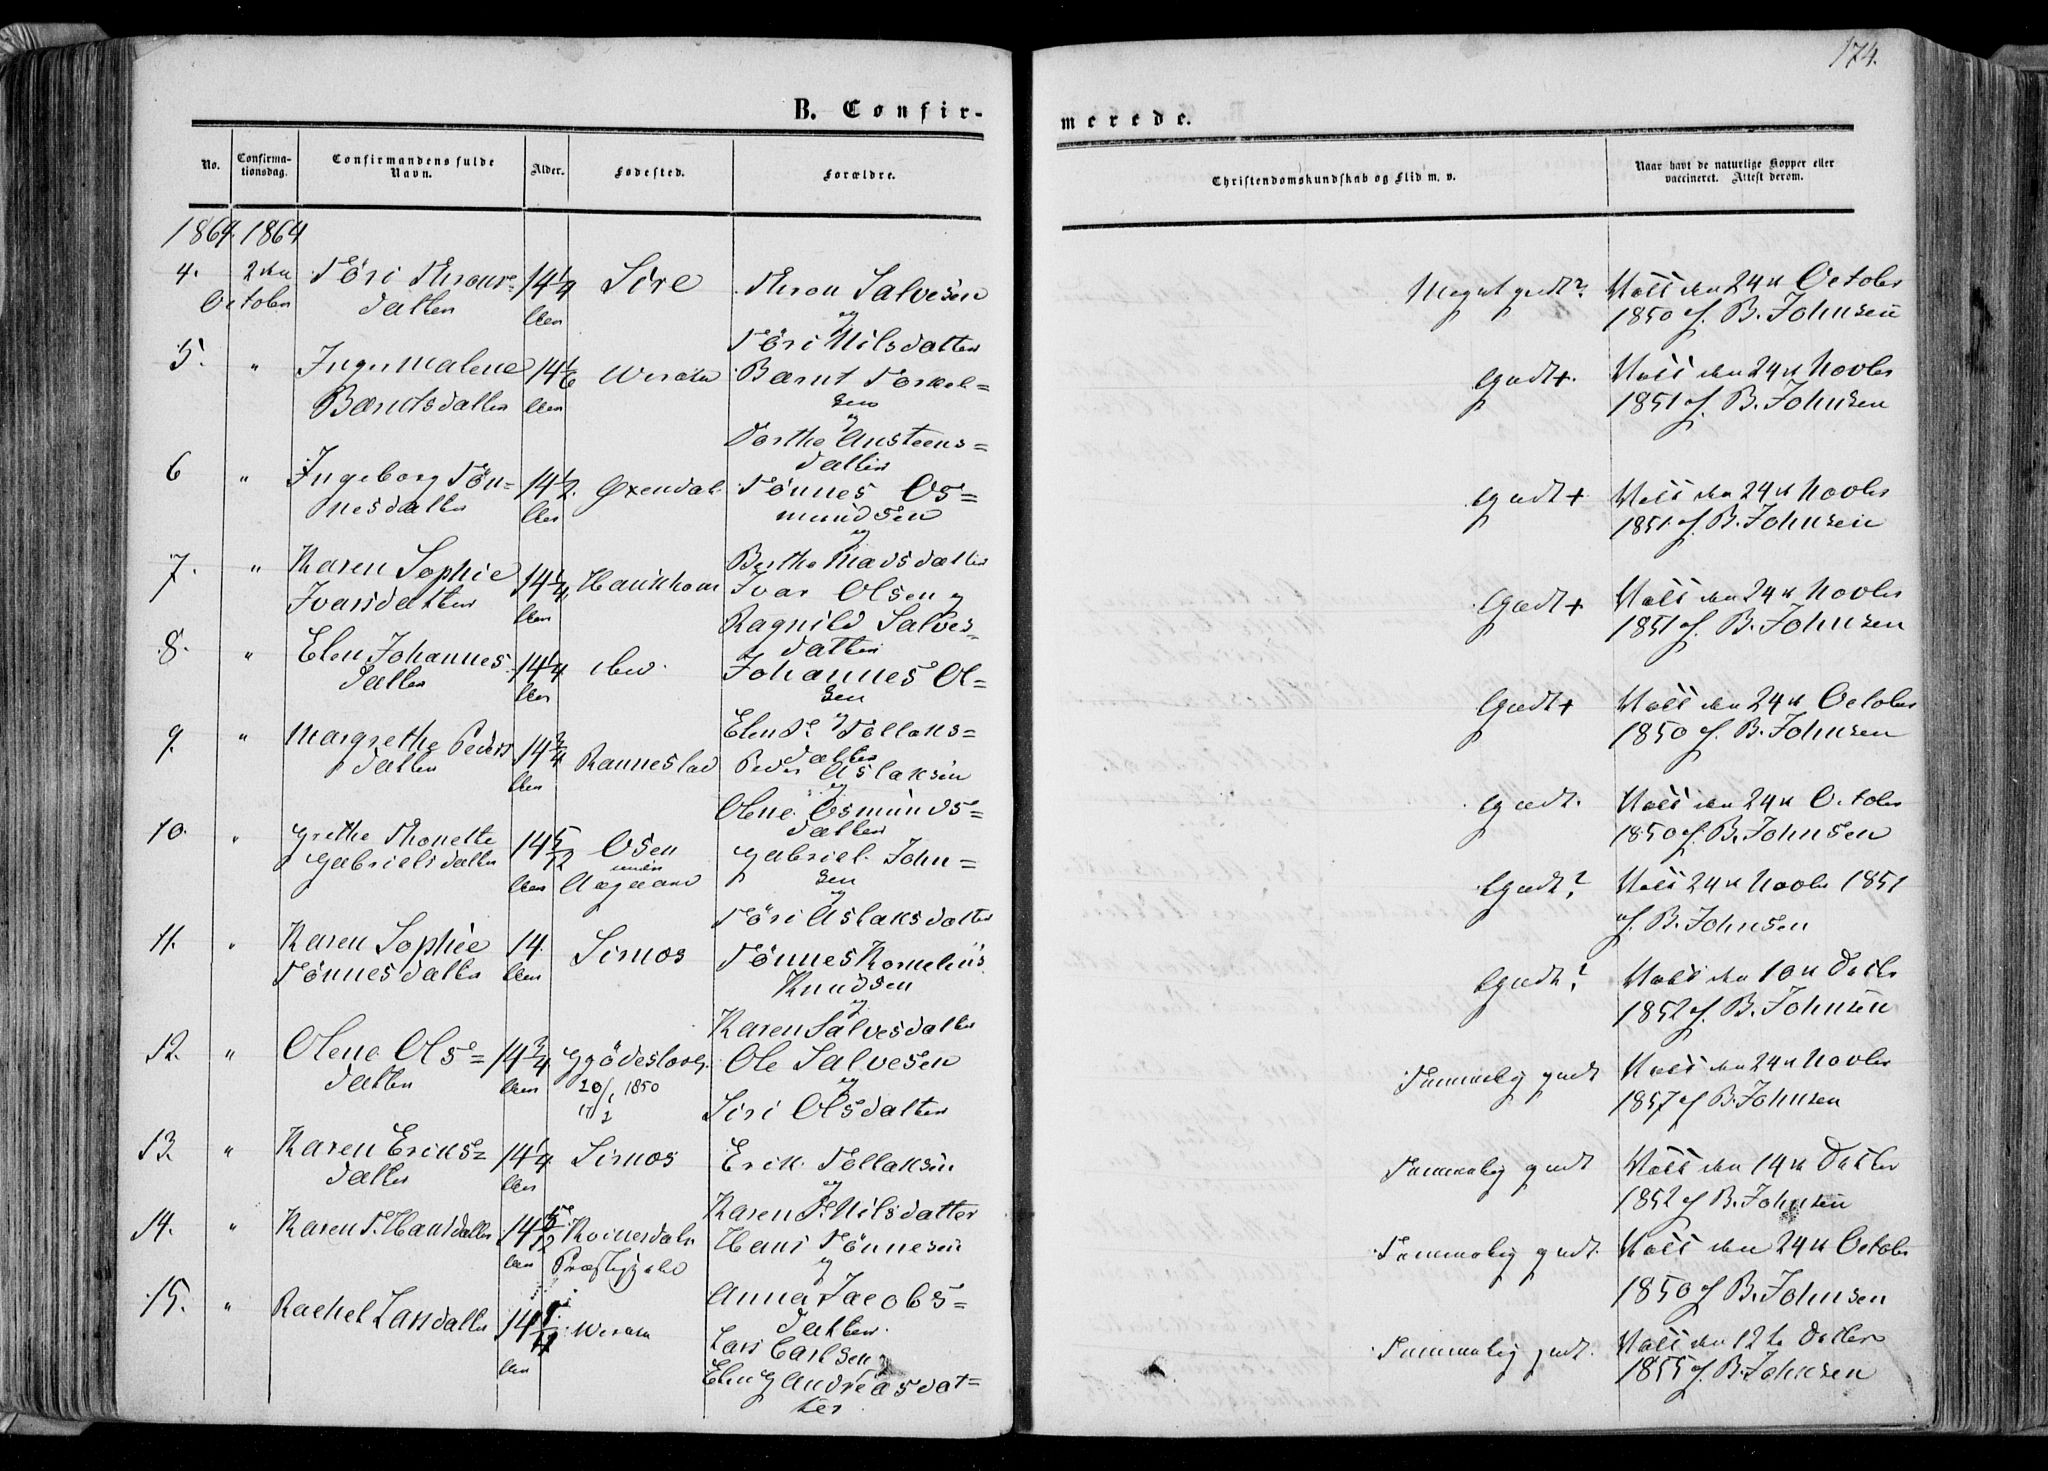 174.
B. Confir-
merede.
No.
Confirma-
tionsdag.
Confirmandens fulde
Navn.
Alder.
Fødested.
Forældre.
Christendomskundskab og Flid m. v.
Naar havt de naturlige Kopper eller
vaccineret. Attest derom.
1864. 1864
4. 2den October Töri Throns-
datter 14 1/4 Aar Sire Thron Salvesen
og
Töri Nilsdatter
Meget godt? Vacc den 24de October
1850 af B. Johnsen
5. " Inger Malene
Berntsdatter 14 1/6 Aar Bernt Torkel=
sen
og
Dorthe Austeens=
datter
Godt+. Vacc den 24de Novbr
1851 af B. Johnsen
6 " Ingeborg Tön-
nesdatter 14 1/2 Aar Øxendal Tönnes Os=
mundsen
og
Berthe Madsdatter
Godt+ Vacc den 24de Novbr
1851 af B. Johnsen
7. " Karen Sophie
Ivarsdatter 14 1/4 Aar Haukhom Ivar Olsen og
Ragnild Salves=
datter
Godt+ Vacc den 24de Novbr
1851 af B. Johnsen
8. " Elen Johannes
datter 14 1/4 Aar ibid. Johannes Ol=
sen
og
Elen T. Tollaks=
datter
Godt+ Vacc den 24de October
1850 af B. Johnsen
9. " Margrethe Peders
datter 14 3/4 Aar Ranneslad Peder Aslaksen
og
Olene Osmunds=
datter
Godt. Vacc den 24de October
1850 af B. Johnsen
10. " Grethe Thonette
Gabrielsdatter 14 5/12 Aar Osen
under
Aagaard Gabriel John=
sen
og
Töri Aslaksdatter
Godt? Vacc 24de Novbr 1851
af B. Johnsen
11. " Karen Sophie
Tönnesdatter 14 Aar Sirnos Tönnes Kornelius
Knudsen
og
Karen Salvesdatter
Godt? Vacc den 10de Decbr
1852 af B. Johnsen
12. " Olene Ols=
datter 14 3/4 Aar
20/1 1850
Ole Salvesen
og
Siri Olsdatter
Temmelig godt Vacc den 24de Novbr
1857 af B. Johnsen
13. " Karen Eriks=
datter 14 1/4 Aar Sirnos Erik Tollaksen
og
Karen T. Nilsdatter
Temmelig godt Vacc den 14de Decbr
1852 af B. Johnsen
14. " Karen T. Hansdatter Aar
Præstegjeld Hans Tönnesen
og
Anna Jacobs=
datter.
Temmelig godt. Vacc den 24de October
1850 af B. Johnsen
15. " Rachel Larsdatter Aar Lars Carlsen
Elen G Andreasdat=
ter
Temmelig godt. Vacc den 12te Decbr
1855 af B. Johnsen